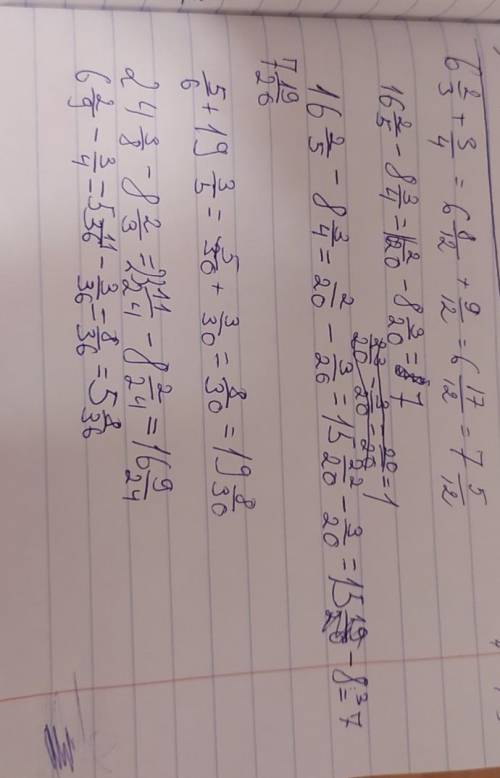 6 2/3 + 3/4 = 6 8/12 + 9/12 = 6 17/12 = 7 5/12
16 2/5 - 8 3/4 = 2/20 - 8 3/20 = 7
22/20 - 3/20 - 20/20 = 1
16 2/5 - 8 3/4 = 2/20 - 3/20 = 15 22/20 - 3/20 = 15 19/20 - 8 = 7
7 19/20
5/6 + 19 3/5 = 5/30 + 3/30 = 8/30 = 19 8/30
24 3/8 - 8 2/3 = 11/24 - 8 2/24 = 16 9/24
6 2/9 - 3/4 = 5 11/36 - 3/36 = 8/36 = 5 8/36